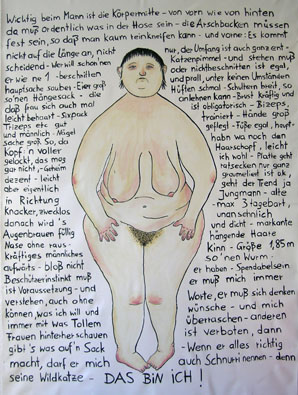 Wichtig beim Mann ist die Körpermitte - von vorn wie von hinten
da muß Ordentlich was in der Hose sein - die Arschbacken müssen
fest sein, so daß man kaum reinkneifen kann - und vorne: Es kommt
nicht auf die Länge an, nicht nur, der Umfang ist auch ganz ent-
scheidend - Wer will schon 'nen Katzenpimmel - und stehen muß
er wie ne 1 - beschnitten oder nichtbeschnitten ist egal,
hauptsache sauber - Eier groß und prall, unter keinen Umständen
so'nen Hängesack - die Hüften schmal - Schultern breit, so
daß frau sich auch mal anlehnen kann - Brust kräftig und
leicht behaart - Sixpack ist obligatorisch - Bizeps,
Trizeps etc gut trainiert - Hände groß
und männlich - Nägel gepflegt - Füße egal, haupt-
sache groß. So, da habn wa noch den
Kopf: n' voller Haarschopf, leicht
gelockt, das mag ich wohl - Platte geht
gar nicht, - Geheim ratsecken nur ganz
dezent - leicht graumeliert ist ok,
aber eigentlich geht der Trend ja
in Richtung Jungmann - alte
Knacker, zwecklos - max 3 tagebart,
danach wird's unansehnlich
Augenbrauen füllig und dicht - markante
Nase ohne raus hängende Haare
Kräftiges männliches Kinn - Größe 1,85m
aufwärts - bloß nicht so'nen Wurm.
Beschützerinstinkt muß er haben - Spendabelsein
ist Voraussetzung - und er muß mich immer
verstehen, auch ohne Worte, er muß sich denken
können, was ich will und wünsche - und mich
immer mit was Tollem überraschen - anderen
Frauen hinterherschauen ist verboten, dann
gibt's was auf'n Sack - Wenn er alles richtig
macht, darf er mich auch Schnurri nennen - denn
seine Wildkatze - DAS BIN ICH !